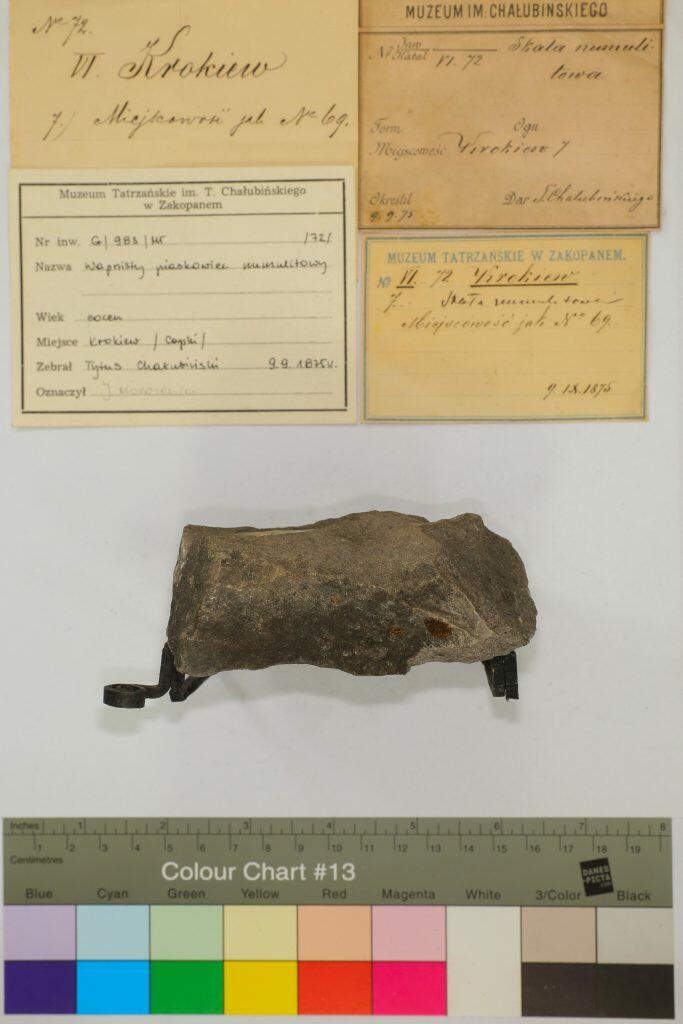 No 72.
VI. Krokiew
7.) Miejscowość jak No 69.
MUZEUM IM: CHAŁUBIŃSKIEGO
No Inw. Katal. VI. 72 Skała numuli-
towa
Form Ogn
Miejscowość Krokiew 7
Określił Dar T. Chałubińskiego
9.9.75
Muzeum Tatrzańskie im. T. Chałubińskiego
w Zakopanem
Nr inw. G/983/MT /72/
Nazwa wapnisty piaskowiec numulitowy
Wiek eocen
Miejsce Krokiew /Capki/
Zebrał Tytus Chałubiński 9.9.1875r.
Oznaczył J. Morozewicz
MUZEUM TATRZAŃSKIE W ZAKOPANEM.
No VI. 72 Krokiew.
7. Skała numulitowa
Miejscowość jak No 69.
9.IX.1875
Inches 1 2 3 4 5 6 7 8
1 2 3 4 5 6 7 8 9 10 11 12 13 14 15 16 17 18 19
Centimetres
Colour Chart #13
DANES
-PICTA
.COM
Blue Cyan Green Yellow Red Magenta White 3/Color Black